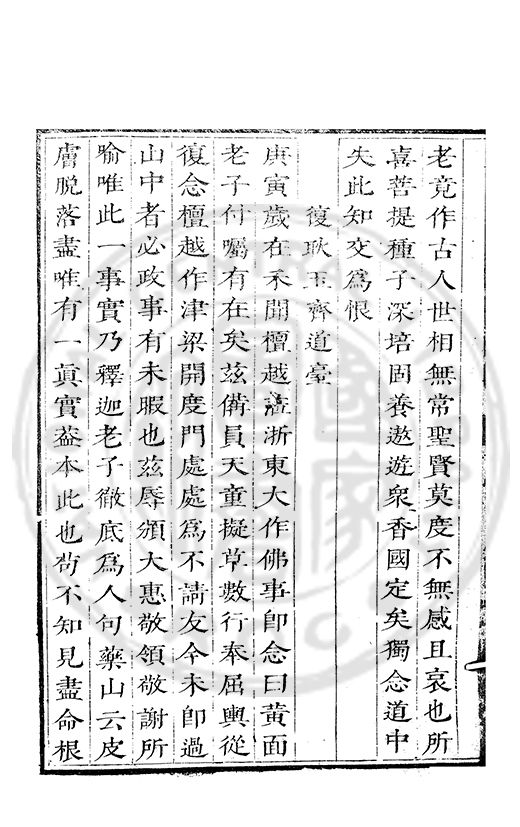 老竟作古人世相無常聖賢莫度不無感且哀也所
喜菩提種子深培固養遨遊衆香國定矣獨念道中
失此知交爲恨
復耿玉齊道臺
庚寅歲在禾聞檀越蒞浙東大作佛事卽念曰黃面
老子付囑有在矣茲備員天童擬草數行奉屈輿從
復念檀越作津梁開度門處處爲不請友今未卽過
山中者必政事有未暇也茲辱頒大惠敬領敬謝所
喻唯此一事實乃釋迦老子徹底爲人句藥山云皮
膚脫落盡唯有一眞實葢本此也茍不知見盡命根